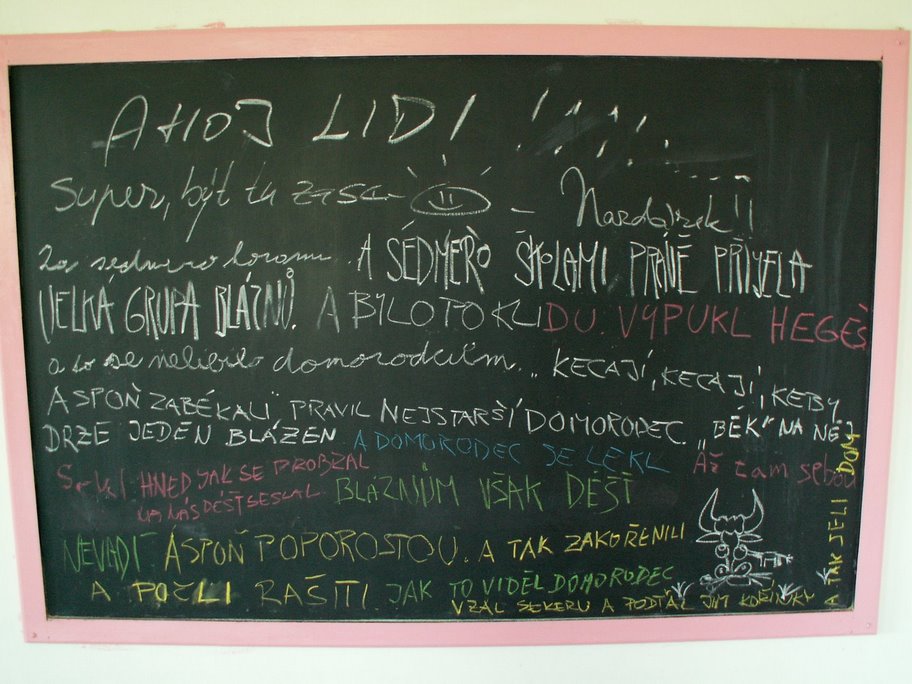 AHOJ LIDI !!!!...
Super, být tu zase
Nazdárek!!
Za sedmero horami. A SEDMERO ŠKOLAMI PRÁVĚ PŘIJELA
VELKÁ GRUPA BLÁZNŮ. A BYLO PO KLIDU. VYPUKL HEGEŠ
a to se nelíbilo domorodcům. „KECAJÍ, KECAJÍ, KEBY
ASPOŇ ZABÉKALI" PRAVIL NEJSTARŠÍ DOMORODEC. „BÉK" NA NĚJ
DRZE JEDEN BLÁZEN A DOMORODEC SE LEKL AŽ tam sebou
HNED JAK SE PROBRAL
NA NÁS DÉŠŤ SESLAL. BLÁZNŮM VŠAK DÉŠŤ
NEVADÍ. ASPOŇ POPOROSTOU. A TAK ZAKOŘENILI
A POČLI RAŠITI. JAK TO VIDĚL DOMORODEC
VZAL SEKERU A PODŤAL JIM KOŘÍNKY
A TAK JELI DOM